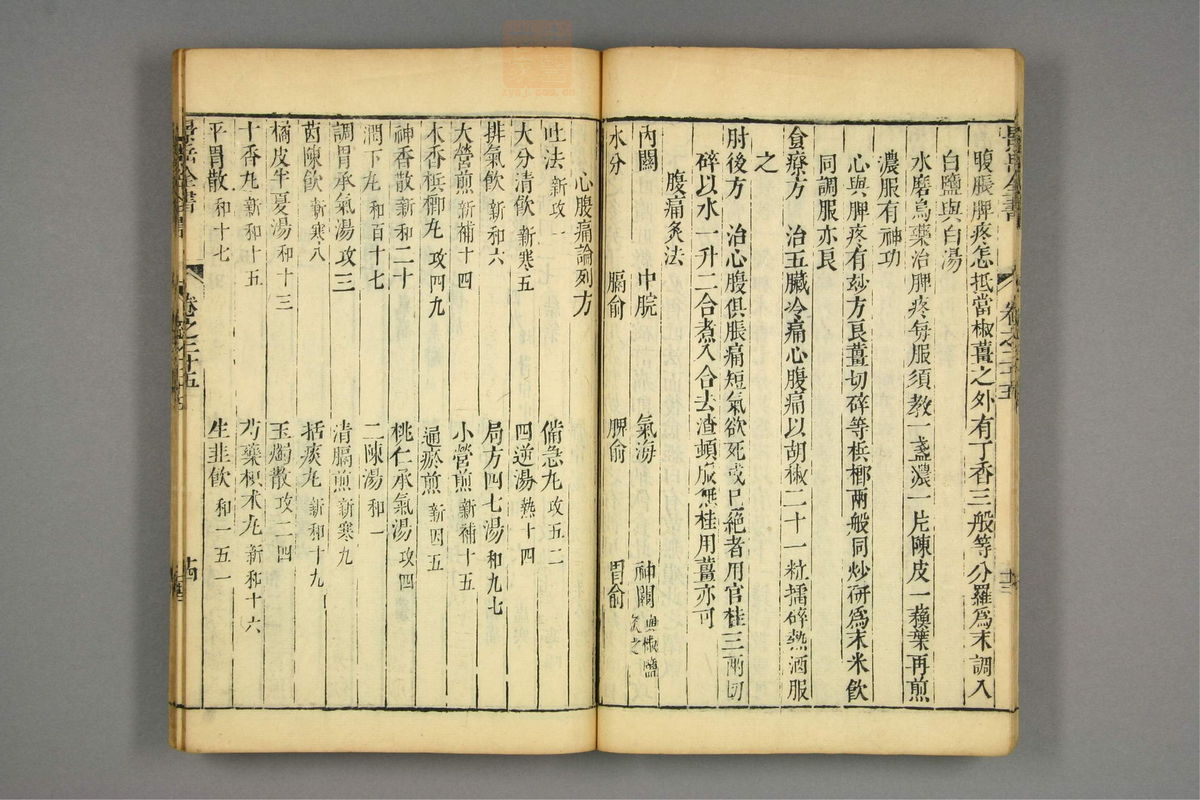 腹脹脾疼怎抵當椒薑之外有丁香三般等分羅爲末調入
白鹽與白湯
水磨烏藥治脾疼每服須教一盞濃一片陳皮一蘇葉再煎
濃服有神功
心與脾疼有玅方良薑切碎等梹榔兩般同炒研爲末米飲
同調服亦良
食療方　治五臟冷痛心腹痛以胡椒二十一粒擂碎熱酒服
之
肘後方　治心腹俱脹痛短氣欲死或已絕者用官桂三兩切
碎以水一升二合煮八合去渣頓服無桂用薑亦可
腹痛灸法
內關　中脘　氣海　神闕
灸之
水分　膈俞　脾俞　胃俞
景岳全書　卷之二十五
心腹痛論列方
吐法　新攻一　備急丸　攻五二
大分清飲　新寒五　四逆湯　熱十四
排氣飲　新和六　局方四七湯　和九七
大營煎　新補十四　小營煎　新補十五
木香梹榔丸　攻四九　通瘀煎　新因五
神香散　新和二十　桃仁承氣湯　攻四
潤下丸　和百十七　二陳湯　和一
調胃承氣湯　攻三　清膈煎　新寒九
茵陳飲　新寒八　括痰丸　新和十九
橘皮半夏湯　和十三　玉燭散　攻二四
十香丸　新和十五　芍藥枳朮丸　新和十六
平胃散　和十七　生韭飲　和一五一
景岳全書　卷之二十五　十四